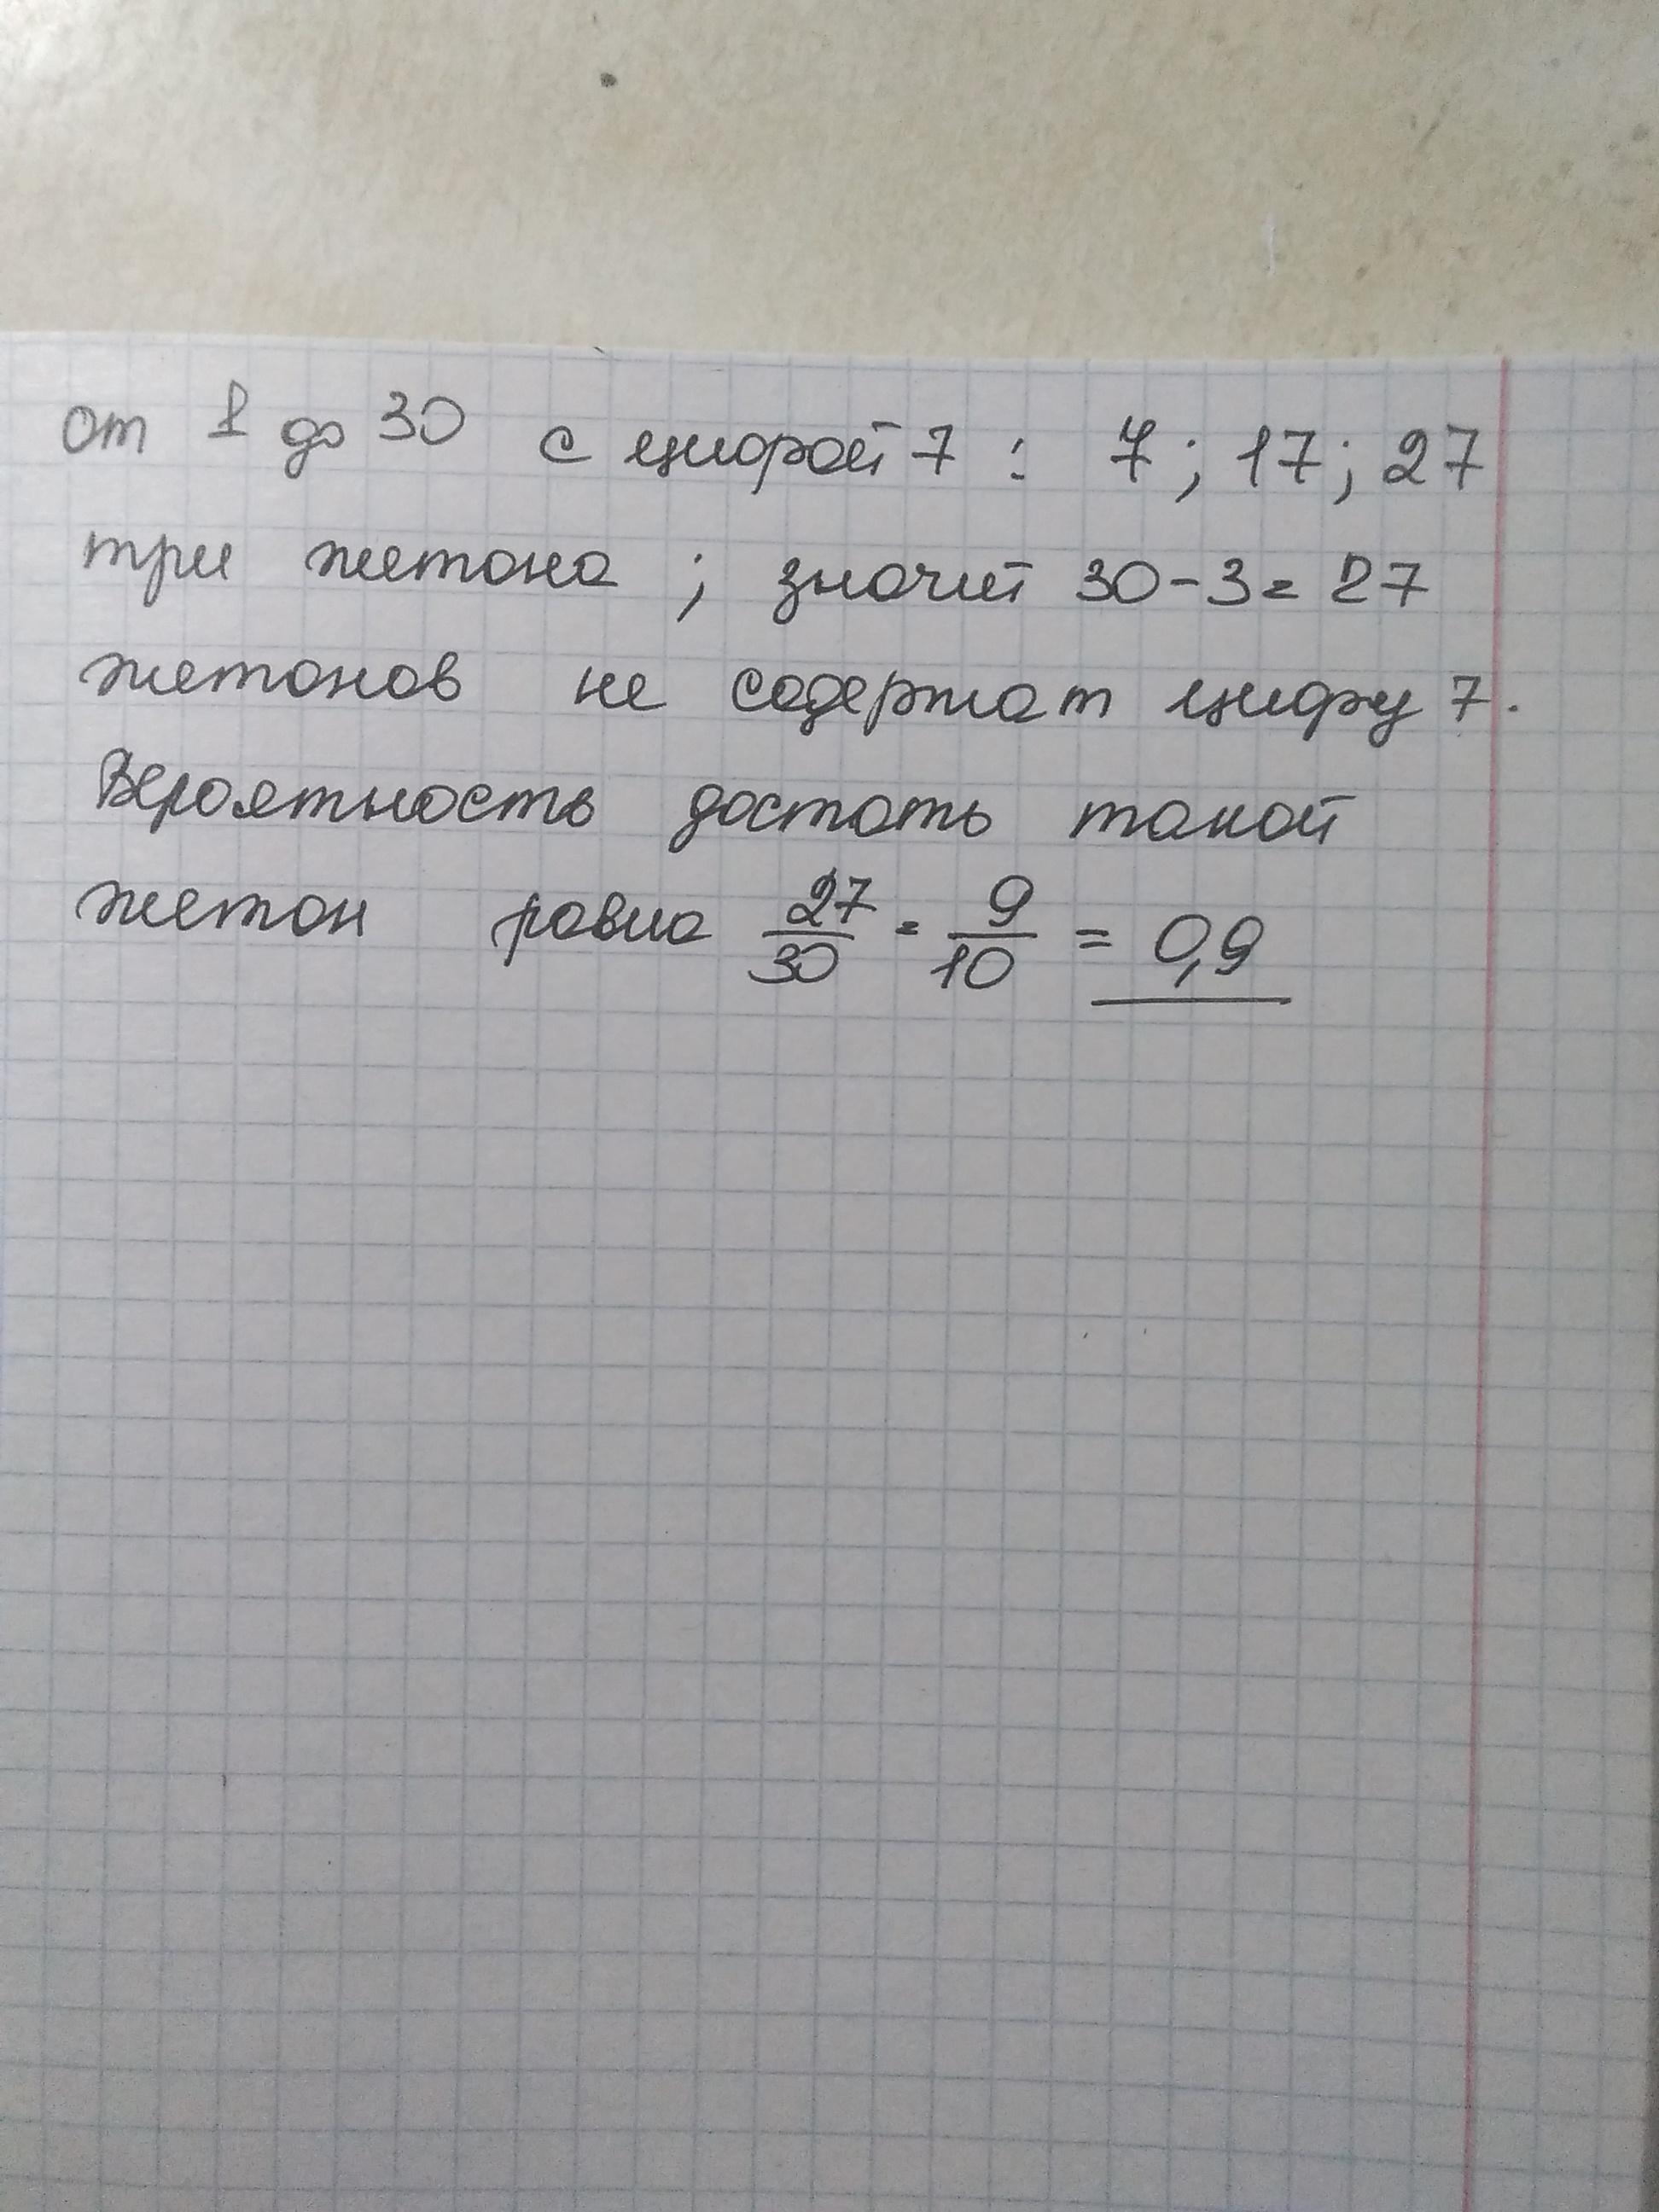 от 1 до 30 с цифрой 7 : 7; 17; 27
три жетона ; значит 30-3=27
жетонов не содержат цифру 7.
Вероятность достать такой
жетон равна 27/30 = 9/10 = 0,9